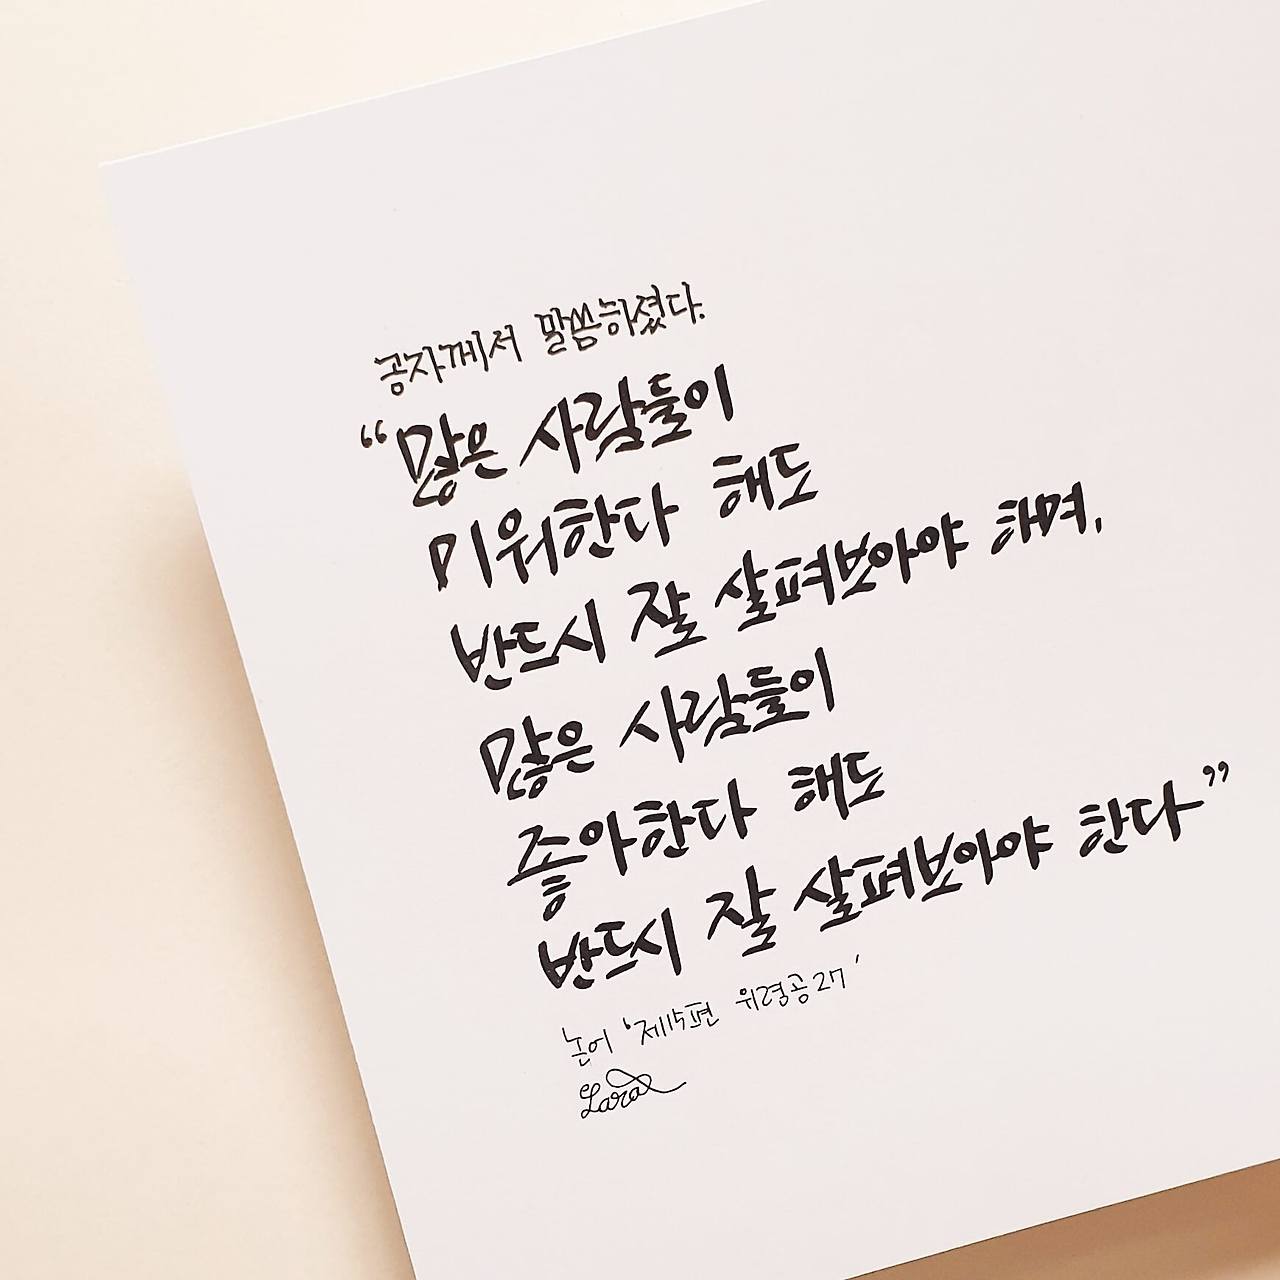 공자께서 말씀하셨다.
“많은 사람들이
미워한다 해도
반드시 잘 살펴보아야 하며,
많은 사람들이
좋아한다 해도
반드시 잘 살펴보아야 한다”
논어 ‘제15편 위령공27’
Lara